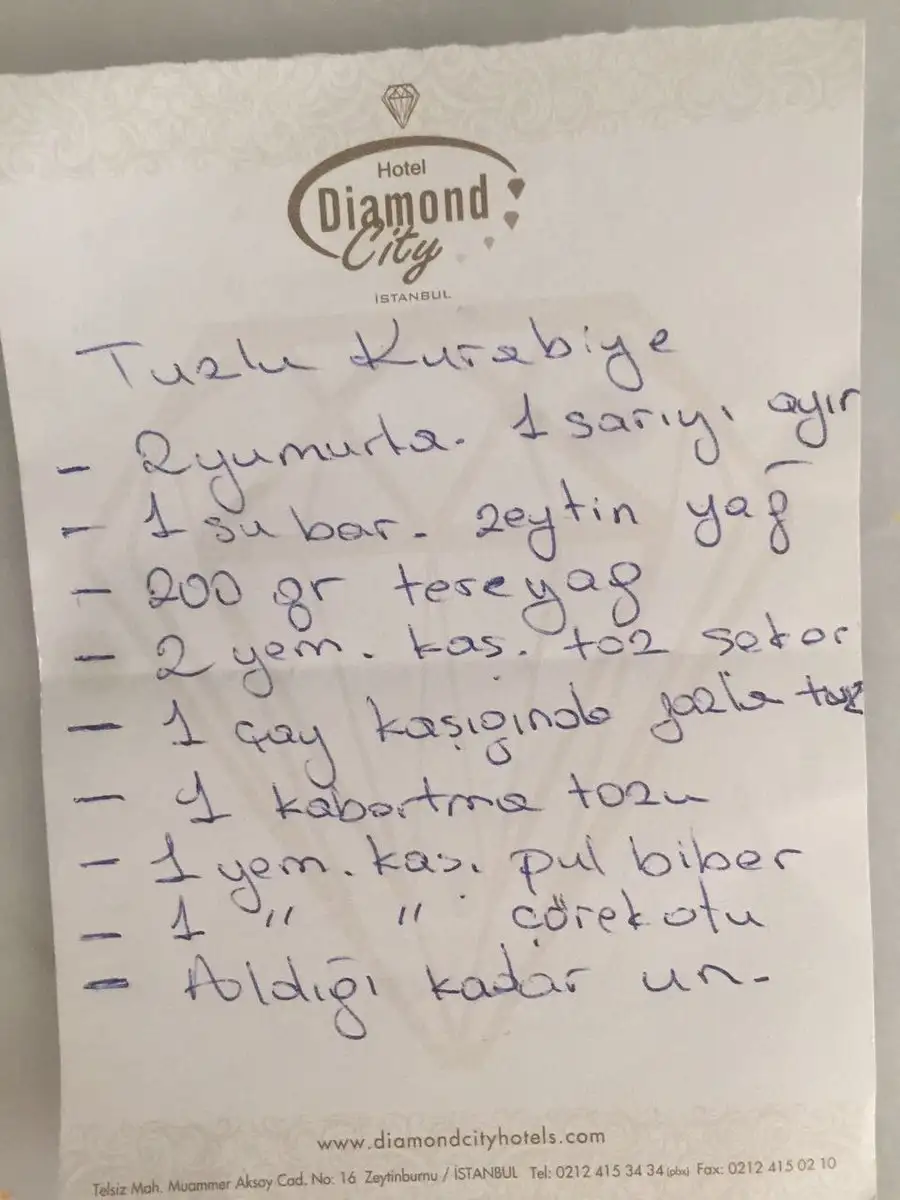 Hotel
Diamond
City
İSTANBUL
Tuzlu Kurabiye
- 2 yumurta. 1 sarıyı ayır
- 1 su bar. zeytin yağ
- 200 gr tereyağ
- 2 yem. kaş. toz şeker
- 1 çay kaşığında fazla tuz
- 1 kabartma tozu
- 1 yem. kaş. pul biber
- 1 " " çörekotu
- Aldığı kadar un.
www.diamondcityhotels.com
Telsiz Mah. Muammer Aksoy Cad. No: 16 Zeytinburnu / İSTANBUL Tel: 0212 415 34 34 (pbx) Fax: 0212 415 02 10